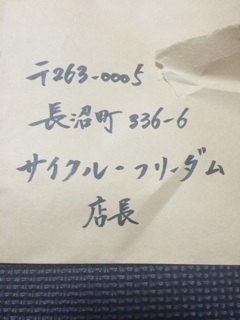 〒263-0005
長沼町336-6
サイクル・フリーダム
店長